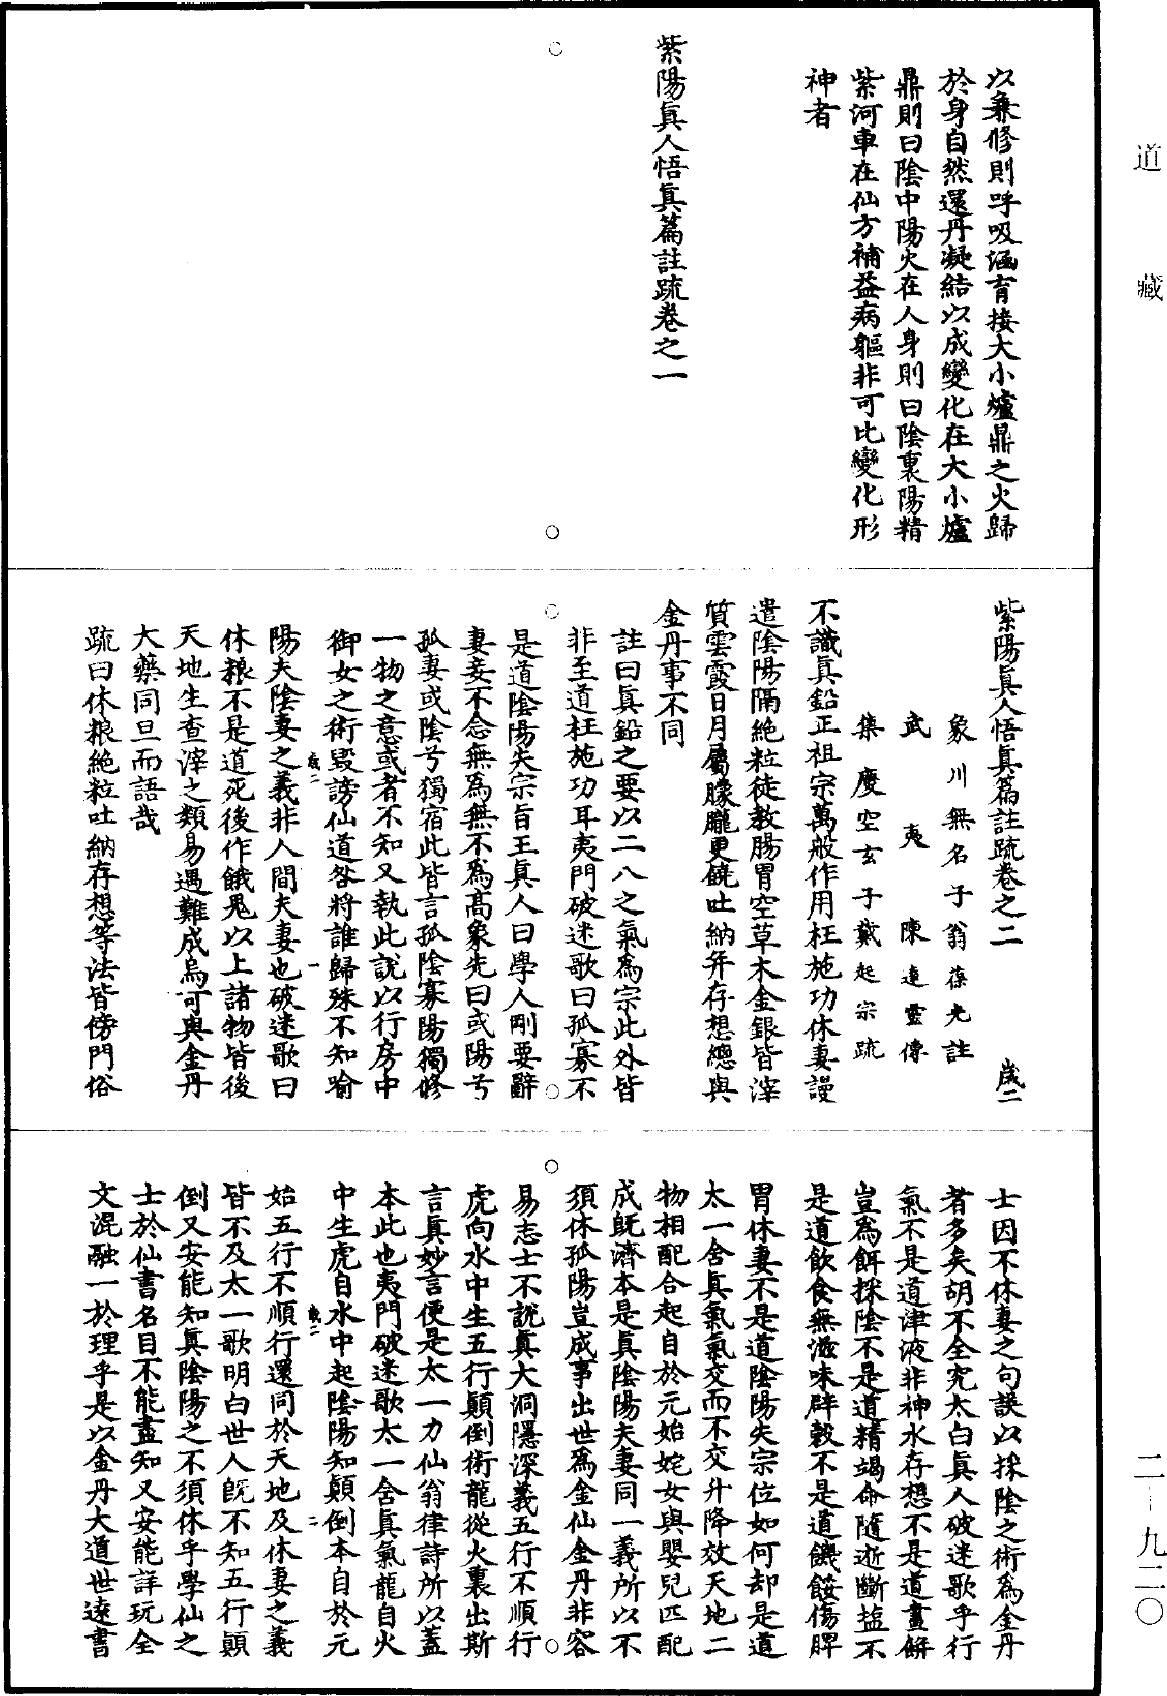 道藏
以兼修則呼吸涵育接大小爐鼎之火歸
於身自然還丹凝結以成變化在大小爐
鼎則曰陰中陽火在人身則曰陰裏陽精
紫河車在仙方補益病軀非可比變化形
神者
紫陽真人悟真篇註疏卷之一
紫陽真人悟真篇註疏卷之二 歲二
象川無名子翁葆光註
武夷陳達靈傳
集慶空玄子戴起宗疏
不識真鉛正祖宗萬般作用枉施功休妻謾
遣陰陽隔絕粒徒教腸胃空草木金銀皆滓
質雲霞日月屬朦朧更饒吐納并存想總與
金丹事不同
註曰真鉛之要以二八之氣為宗此外皆
非至道枉施功耳夷門破迷歌曰孤寡不
是道陰陽失宗旨王真人曰學人剛要辭
妻妾不念無為無不為高象先曰或陽兮
孤妻或陰兮獨宿此皆言孤陰寡陽獨修
一物之意或者不知又執此說以行房中
御女之術毀謗仙道咎將誰歸殊不知喻
歲二 一
陽夫陰妻之義非人間夫妻也破迷歌曰
休粮不是道死後作餓鬼以上諸物皆後
天地生查滓之類易遇難成烏可與金丹
大藥同旦而語哉
疏曰休粮絕粒吐納存想等法皆傍門俗
士因不休妻之句誤以採陰之術為金丹
者多矣胡不全究太白真人破迷歌乎行
氣不是道津液非神水存想不是道畫餅
豈為餌採陰不是道精竭命隨逝斷盐不
是道飲食無滋味辟穀不是道饑餒傷脾
胃休妻不是道陰陽失宗位如何却是道
太一含真氣氣交而不交升降效天地二
物相配合起自於元始姹女與嬰兒匹配
成既濟本是真陰陽夫妻同一義所以不
須休孤陽豈成事出世為金仙金丹非容
易志士不說真大洞隱深義五行不順行
虎向水中生五行顛倒術龍從火裏出斯
言真妙言便是太一力仙翁律詩所以蓋
本此也夷門破迷歌太一含真氣龍自火
中生虎自水中起陰陽知顛倒本自於元
歲二 二
始五行不順行還同於天地及休妻之義
皆不及太一歌明白世人既不知五行顛
倒又安能知真陰陽之不須休乎學仙之
士於仙書名目不能盡知又安能詳玩全
文混融一於理乎是以金丹大道世遠書
二-九二〇